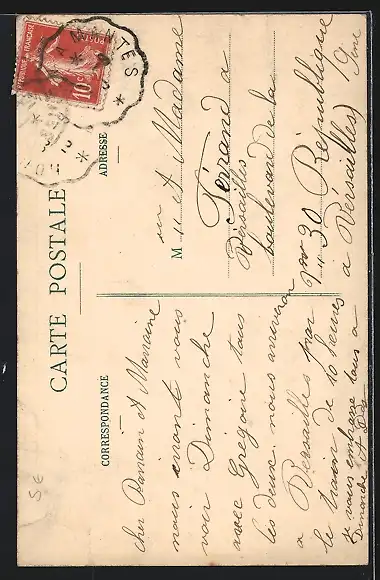 CARTE POSTALE
CORRESPONDANCE
ADRESSE
MANTES
REPUBLIQUE FRANÇAISE
POSTES
10c
cher Parrain et Marraine
nous iront vous
voir Dimanche
avec Gregoire tous
les deux nous arriveron
a Versailles par
le train de 10 heures
je vous embrasse tous a
Dimanche
M et Madame
Ferrand a
Versailles
boulevard de la
30 République
a Versailles
SE